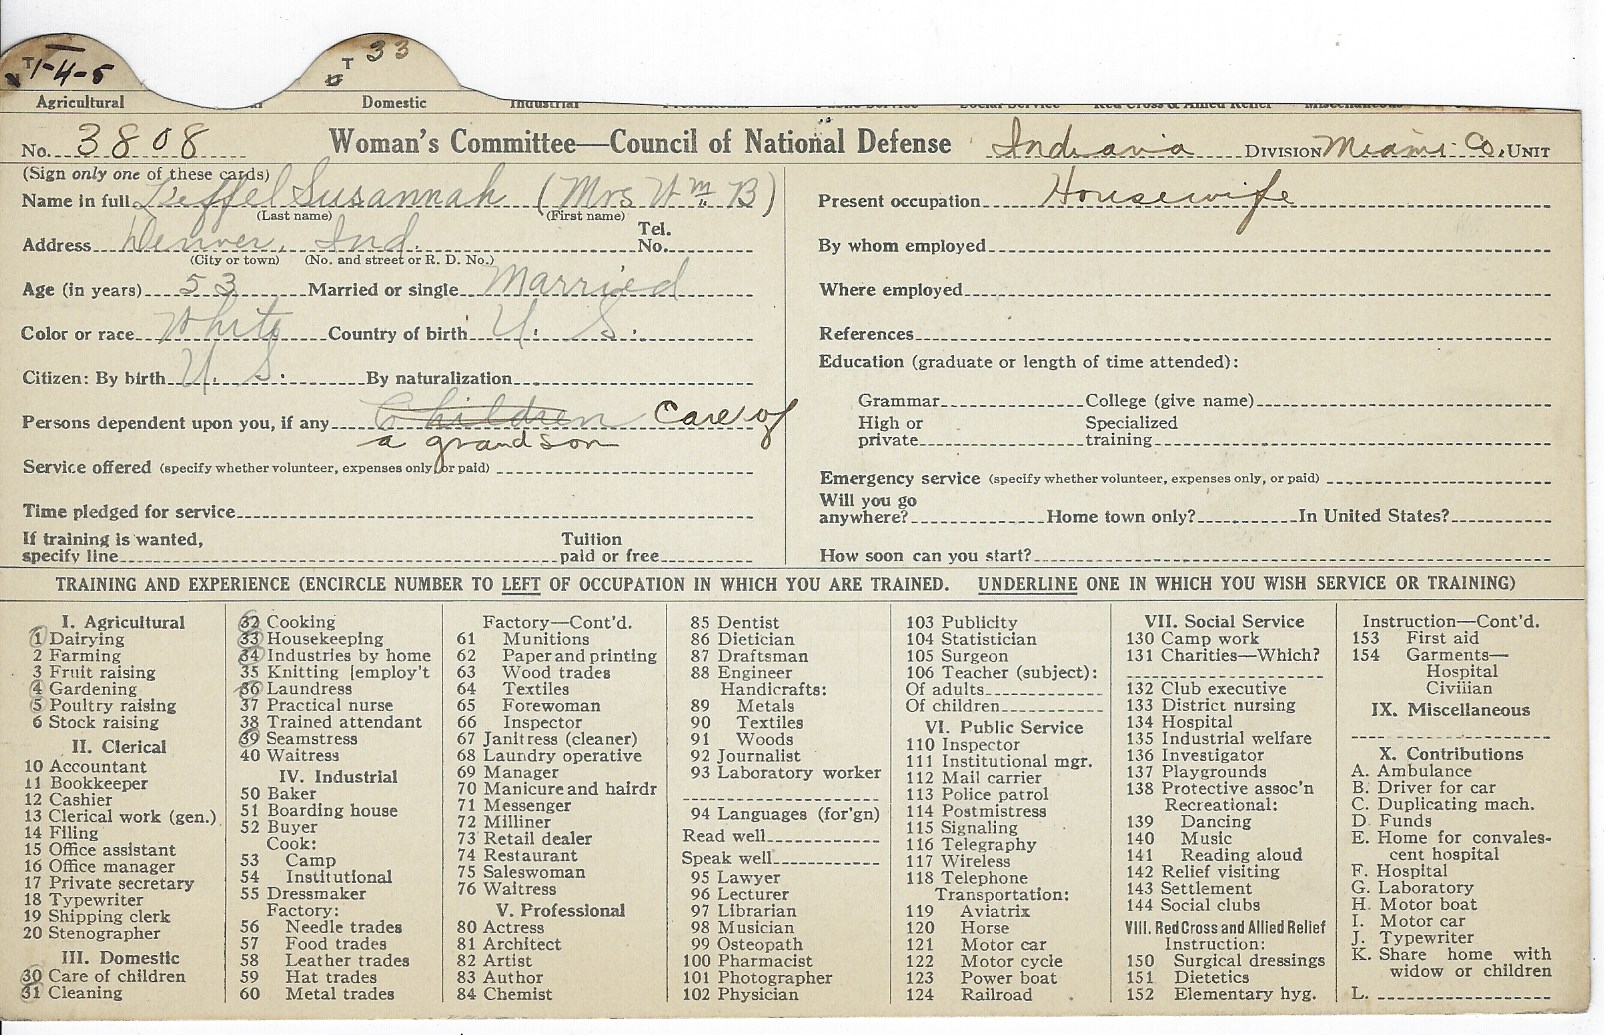 T 1-4-5
T 33
Agricultural Domestic Industrial
No. 3808 Woman's Committee—Council of National Defense Indiana DIVISION Miami Co. UNIT
(Sign only one of these cards)
Name in full Susannah (Mrs Wm B)
(Last name) (First name)
Address Denver, Ind. Tel. No.
(City or town) (No. and street or R. D. No.)
Age (in years) 53 Married or single Married
Color or race White Country of birth U. S.
Citizen: By birth U. S. By naturalization
Persons dependent upon you, if any Children Care of
a grandson
Service offered (specify whether volunteer, expenses only or paid)
Time pledged for service
If training is wanted, Tuition
specify line paid or free
Present occupation Housewife
By whom employed
Where employed
References
Education (graduate or length of time attended):
Grammar College (give name)
High or Specialized
private training
Emergency service (specify whether volunteer, expenses only, or paid)
Will you go
anywhere? Home town only? In United States?
How soon can you start?
TRAINING AND EXPERIENCE (ENCIRCLE NUMBER TO LEFT OF OCCUPATION IN WHICH YOU ARE TRAINED. UNDERLINE ONE IN WHICH YOU WISH SERVICE OR TRAINING)
I. Agricultural
1 Dairying
2 Farming
3 Fruit raising
4 Gardening
5 Poultry raising
6 Stock raising
II. Clerical
10 Accountant
11 Bookkeeper
12 Cashier
13 Clerical work (gen.)
14 Filing
15 Office assistant
16 Office manager
17 Private secretary
18 Typewriter
19 Shipping clerk
20 Stenographer
III. Domestic
30 Care of children
31 Cleaning
32 Cooking
33 Housekeeping
34 Industries by home
35 Knitting [employ't
36 Laundress
37 Practical nurse
38 Trained attendant
39 Seamstress
40 Waitress
IV. Industrial
50 Baker
51 Boarding house
52 Buyer
Cook:
53 Camp
54 Institutional
55 Dressmaker
Factory:
56 Needle trades
57 Food trades
58 Leather trades
59 Hat trades
60 Metal trades
Factory—Cont'd.
61 Munitions
62 Paper and printing
63 Wood trades
64 Textiles
65 Forewoman
66 Inspector
67 Janitress (cleaner)
68 Laundry operative
69 Manager
70 Manicure and hairdr
71 Messenger
72 Milliner
73 Retail dealer
74 Restaurant
75 Saleswoman
76 Waitress
V. Professional
80 Actress
81 Architect
82 Artist
83 Author
84 Chemist
85 Dentist
86 Dietician
87 Draftsman
88 Engineer
Handicrafts:
89 Metals
90 Textiles
91 Woods
92 Journalist
93 Laboratory worker
94 Languages (for'gn)
Read well
Speak well
95 Lawyer
96 Lecturer
97 Librarian
98 Musician
99 Osteopath
100 Pharmacist
101 Photographer
102 Physician
103 Publicity
104 Statistician
105 Surgeon
106 Teacher (subject):
Of adults
Of children
VI. Public Service
110 Inspector
111 Institutional mgr.
112 Mail carrier
113 Police patrol
114 Postmistress
115 Signaling
116 Telegraphy
117 Wireless
118 Telephone
Transportation:
119 Aviatrix
120 Horse
121 Motor car
122 Motor cycle
123 Power boat
124 Railroad
VII. Social Service
130 Camp work
131 Charities—Which?
132 Club executive
133 District nursing
134 Hospital
135 Industrial welfare
136 Investigator
137 Playgrounds
138 Protective assoc'n
Recreational:
139 Dancing
140 Music
141 Reading aloud
142 Relief visiting
143 Settlement
144 Social clubs
VIII. Red Cross and Allied Relief
Instruction:
150 Surgical dressings
151 Dietetics
152 Elementary hyg.
Instruction—Cont'd.
153 First aid
154 Garments—
Hospital
Civilian
IX. Miscellaneous
X. Contributions
A. Ambulance
B. Driver for car
C. Duplicating mach.
D. Funds
E. Home for convales-
cent hospital
F. Hospital
G. Laboratory
H. Motor boat
I. Motor car
J. Typewriter
K. Share home with
widow or children
L.